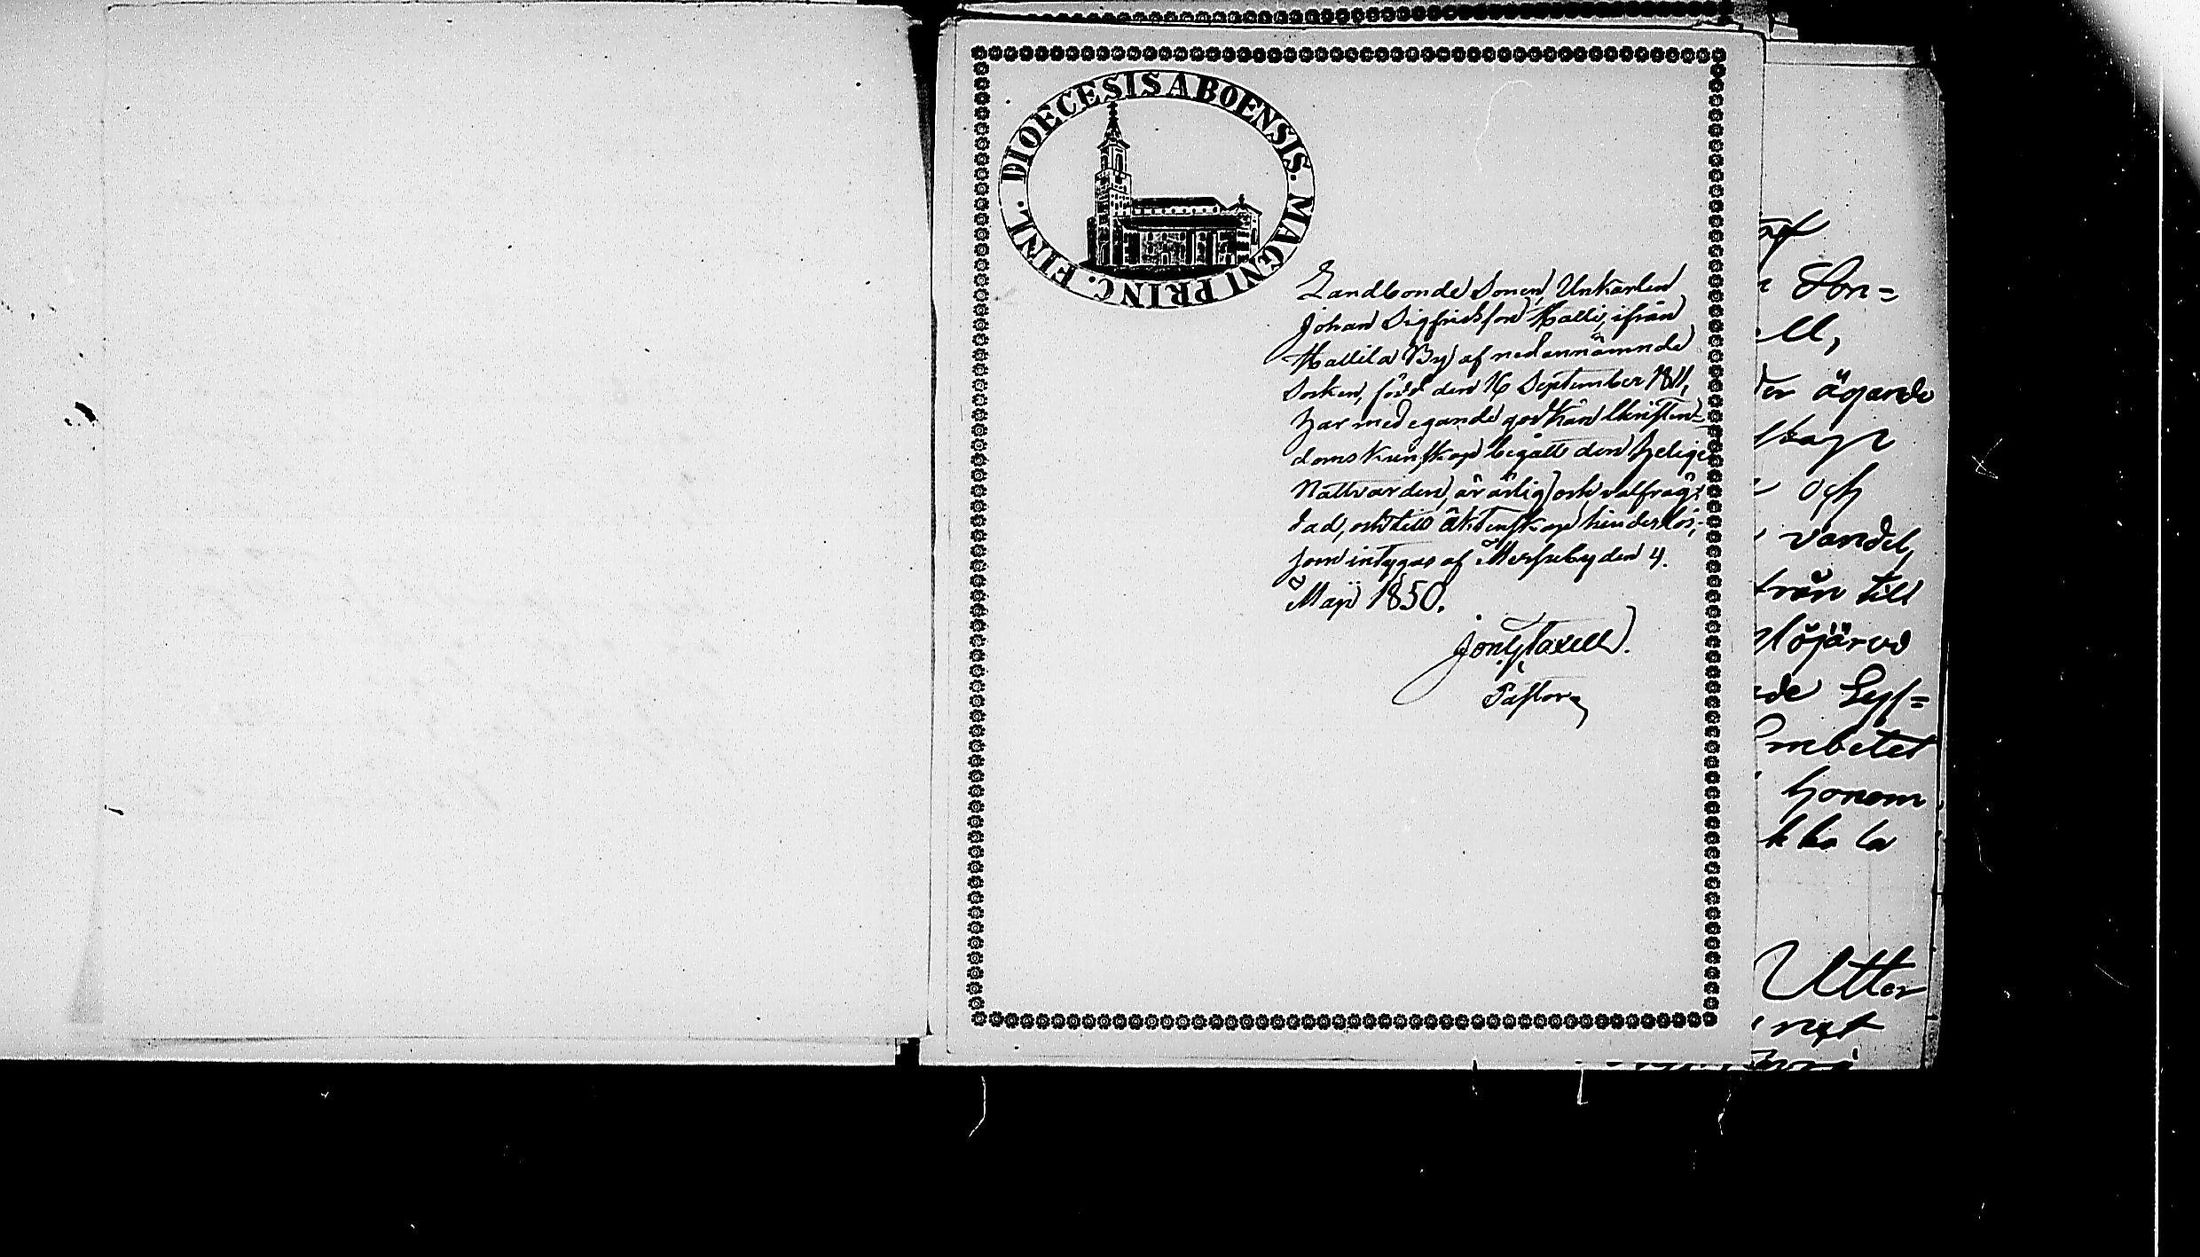 DIOECESIS ABOENSIS. MAGNI PRINC. FINL.
Landbonde Sonen, Unkarlen
Johan Sigfridsson Halli, ifrån
Hallila By af nedannämnde
Socken, född den 16 September 1811,
har med egande godkänd Christen-
doms kunskap begått den helige
Nattvarden, är ärlig och välfräg-
dad, och till äktenskap hinderlös,
som intygas af Merscby den 4.
Maji 1850.
Taxell.
Pastor
af
Son=
ll,
ägande
skap
och
vandel,
från till
löjärvi
de Lys=
mbetet
honom
kkala
Utter